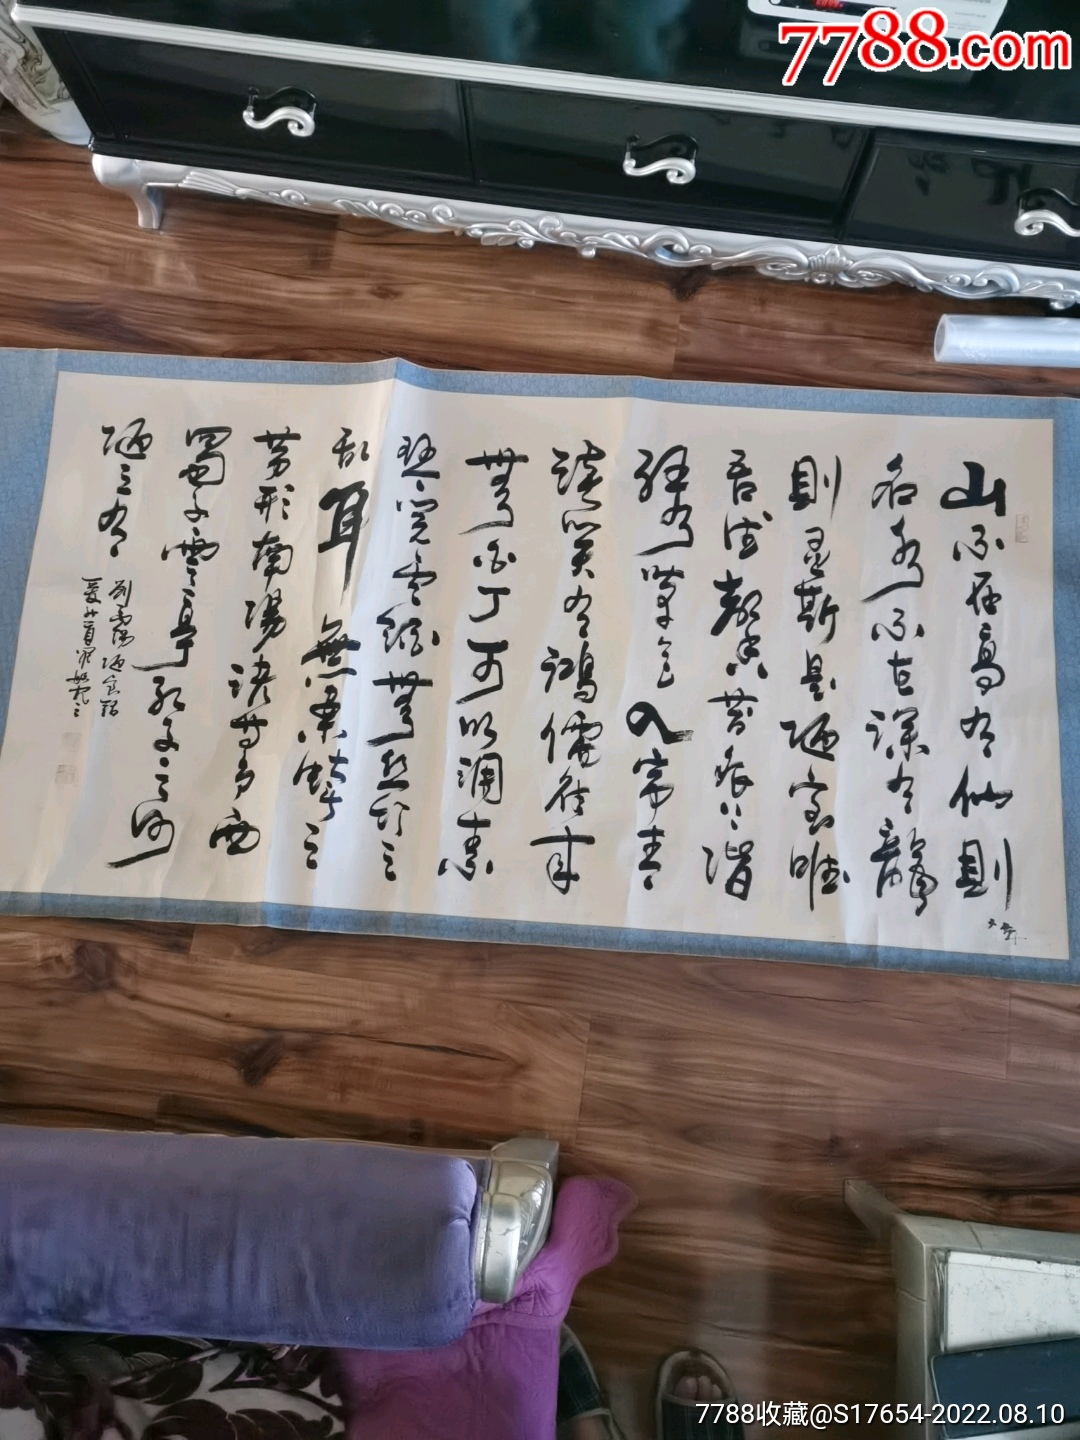 7788.com
山不在高有仙則
名水不在深有龍
則灵斯是陋室唯
吾德馨苔痕上階
緑草色入帘青
談笑有鴻儒往来
無白丁可以調素
琴閱金經無丝竹之
乱耳無案牘之
劳形南陽諸葛廬西
蜀子雲亭孔子云何
陋之有
劉禹錫陋室銘
7788收藏@S17654-2022.08.10